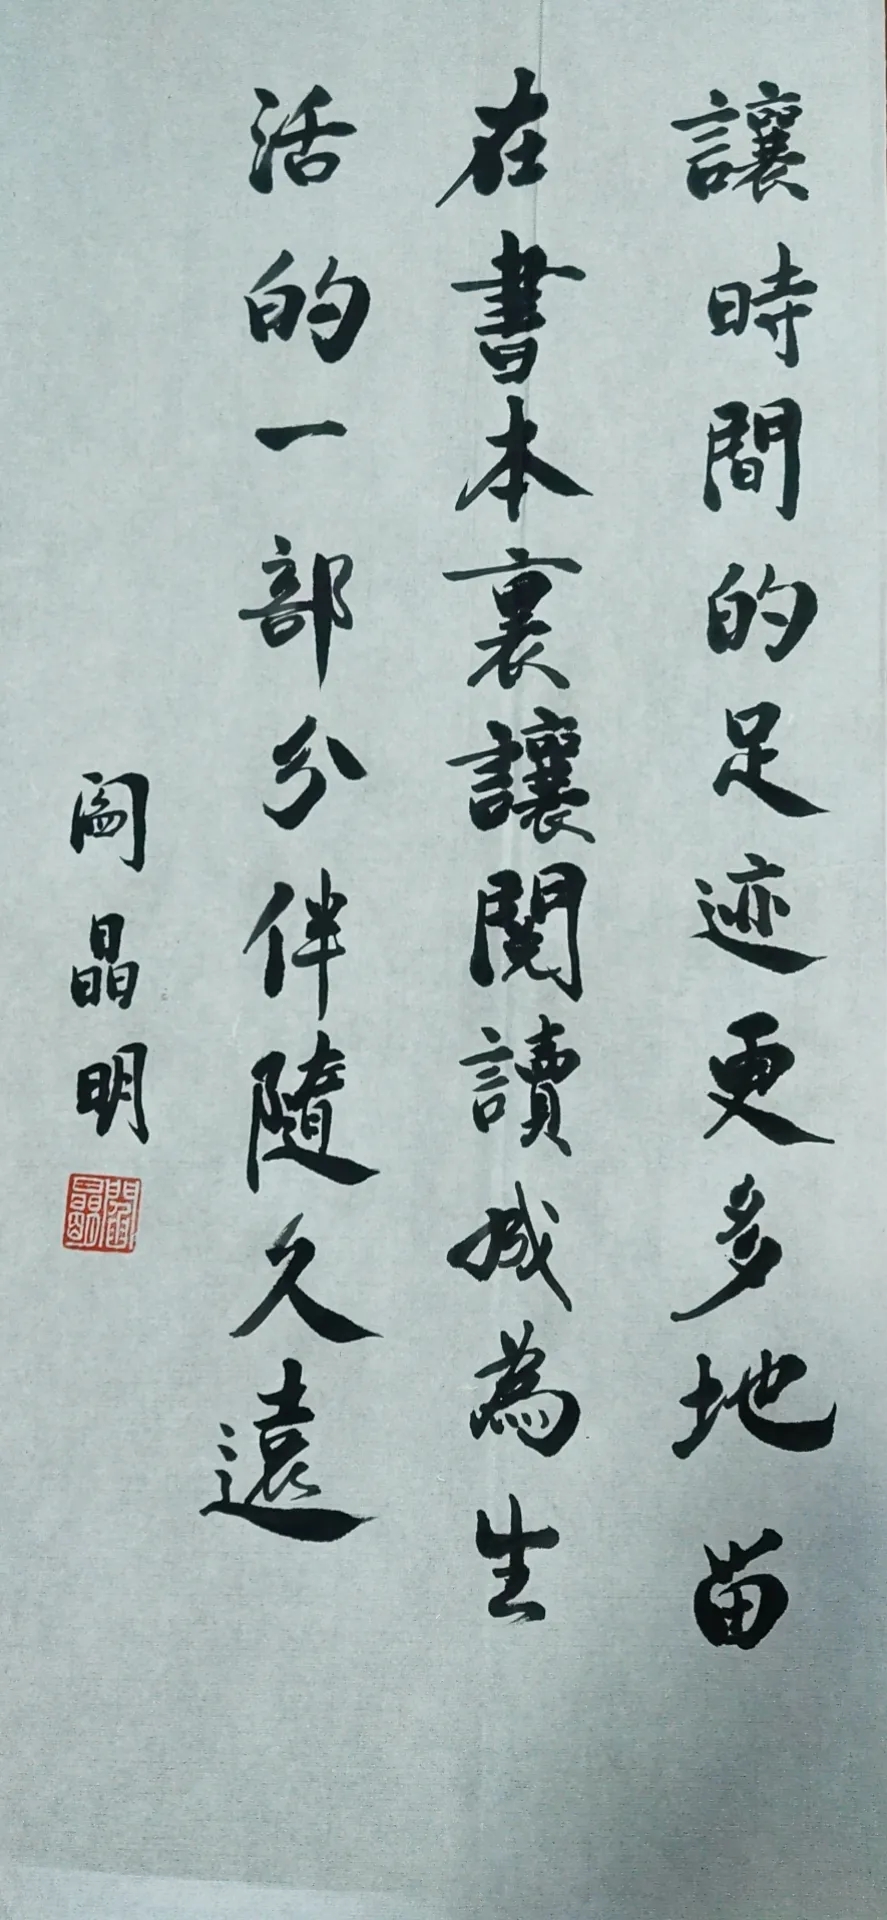 讓時間的足迹更多地留
在書本裏讓閱讀成為生
活的一部分伴隨久遠
閻晶明
閻晶明